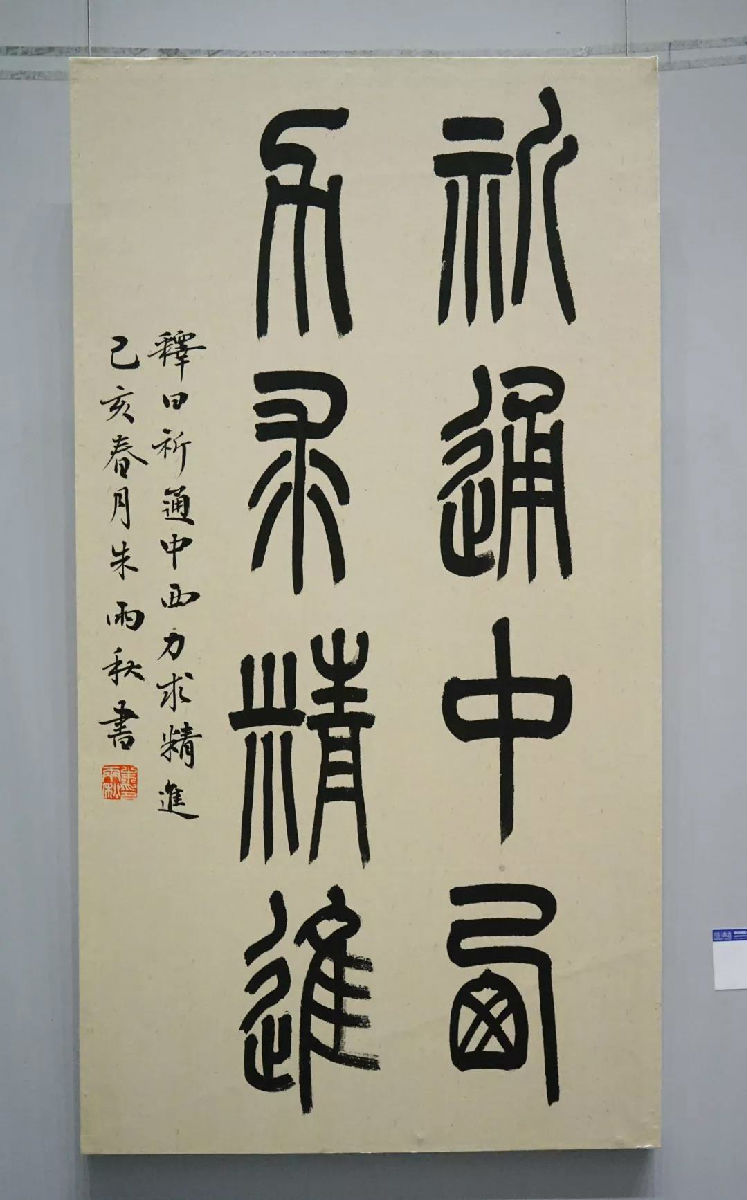 祈通中西
力求精進
釋曰祈通中西力求精進
己亥春月朱雨秋書